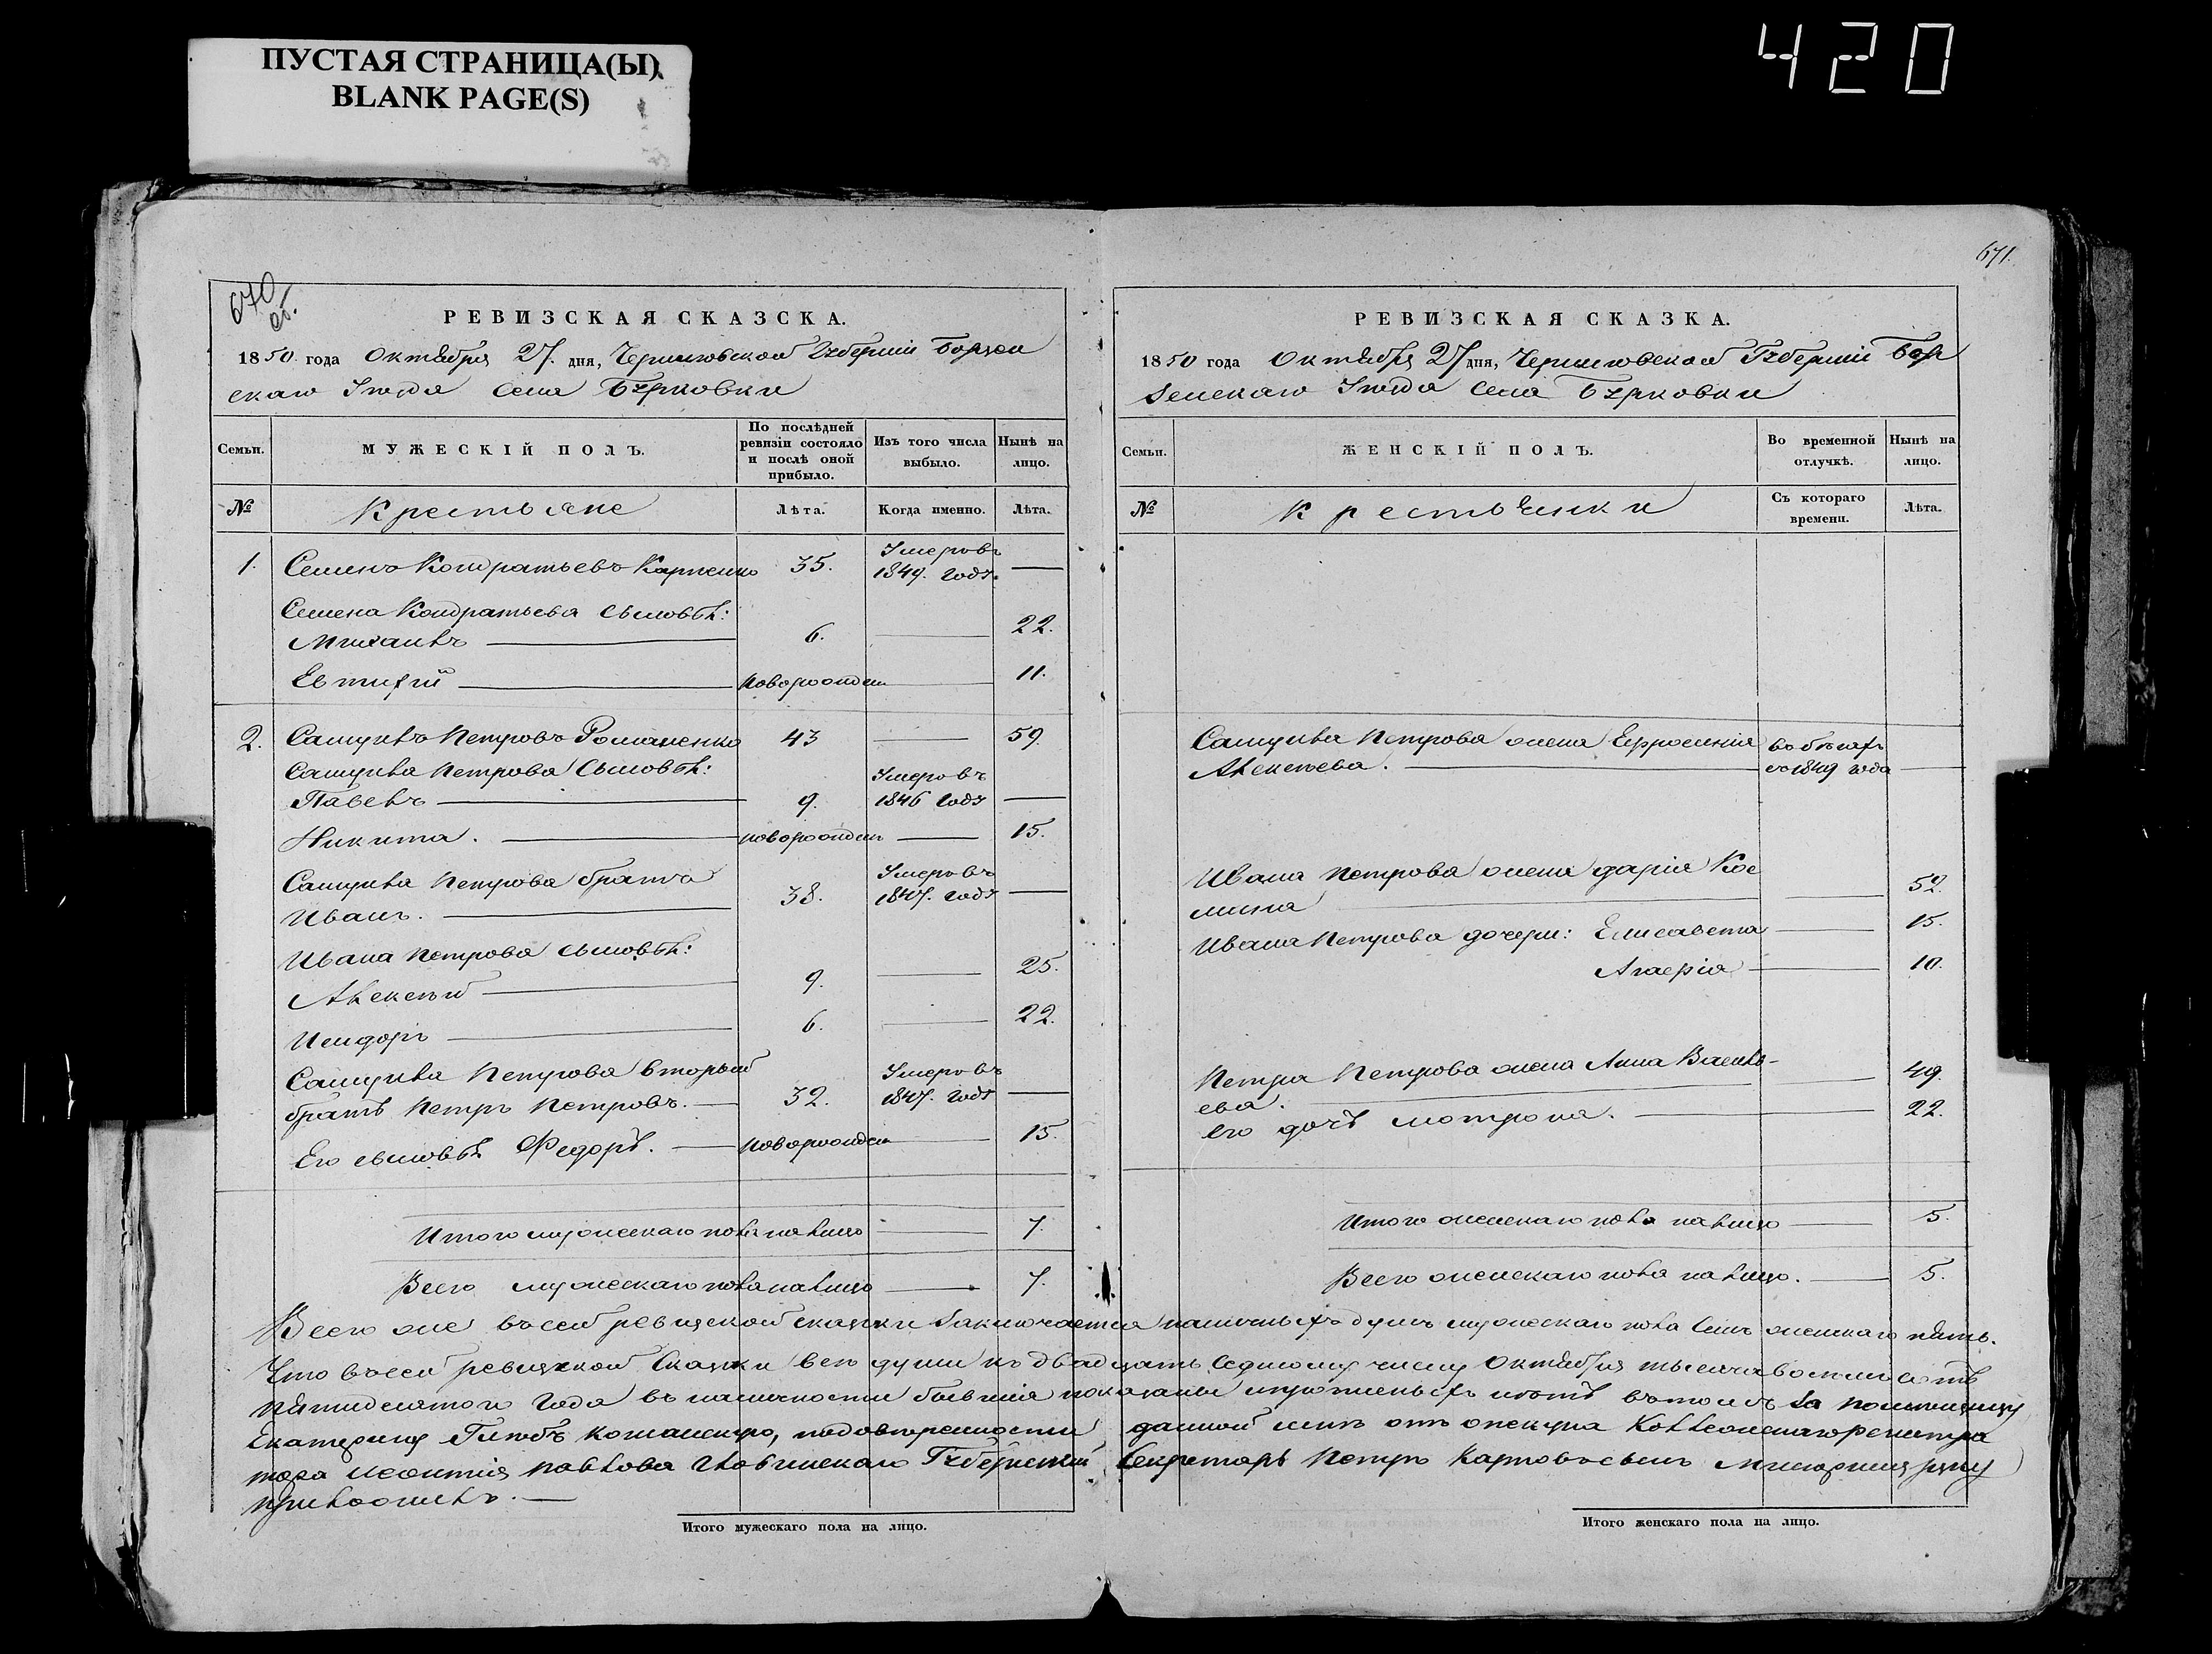 ПУСТАЯ СТРАНИЦА(Ы)
BLANK PAGE(S)
420
671.
670
об.
РЕВИЗСКАЯ СКАЗСКА.
1850 года Октября 27. дня, Черниговской Губерніи Борзен
скаго Уезда Села Бурковки
Семьи. МУЖЕСКІЙ ПОЛЪ. По послѣдней ревизіи состояло и послѣ оной прибыло. Изъ того числа выбыло. Нынѣ на лицо.
№ Крестьяне Лѣта. Когда именно. Лѣта.
1. Семенъ Кондратьевъ Карпенко 35. Умеръ въ 1849. году. —
Семена Кондратьева сыновья:
Михаилъ — 6. — 22.
Евтифій — новорожден — 11.
2. Самуилъ Петровъ Романенко 43 — 59.
Самуила Петрова Сыновья:
Павелъ — 9. Умеръ въ 1846 году —
Никита. — новорожден — 15.
Самуила Петрова братъ
Иванъ. — 38. Умеръ въ 1847. году —
Ивана Петрова сыновья:
Алексѣй — 9. — 25.
Исидоръ — 6. — 22.
Самуила Петрова вторый
братъ Петръ Петровъ. — 32. Умеръ въ 1847. году —
Его сыновья Федоръ. — новорожден — 15.
Итого мужескаго пола на лицо — 7.
Всего мужескаго пола на лицо — 7.
РЕВИЗСКАЯ СКАЗКА.
1850 года Октября 27 дня, Черниговской Губерніи Бор
зенскаго Уезда Села Бурковки
Семьи. ЖЕНСКІЙ ПОЛЪ. Во временной отлучкѣ. Нынѣ на лицо.
№ Крестьянки Съ котораго времени. Лѣта.
Самуила Петрова жена Ефросинія въ бѣгахъ
Алексѣева. — съ 1849 года —
Ивана Петрова жена Дарія Кос
мина — 52.
Ивана Петрова дочери: Елисавета — 15.
Агаерія — 10.
Петра Петрова жена Анна Василь-
ева. — 49.
Его дочь Мотрона. — 22.
Итого женскаго пола на лицо — 5.
Всего женскаго пола на лицо. — 5.
Всего же въ сей ревизской сказки заключается наличныхъ душъ мужескаго пола семь женскаго пять.
Что въ сей ревизской Сказки все души къ двадцать седмому числу Октября тысяча восемь сотъ
пятидесятого Года въ наличности бывшія показаны и пропиеныхъ нѣтъ въ томъ за помещицу
Екатерину Глѣбъ Кошанскую, по довѣренности данной мнѣ отъ опекуна Коллежскаго регистра
тора Леонтія Павлова Главинскаго Губернскій Секретарь Петръ Карповъ сынъ руку
приложилъ. —
Итого мужескаго пола на лицо.
Итого женскаго пола на лицо.